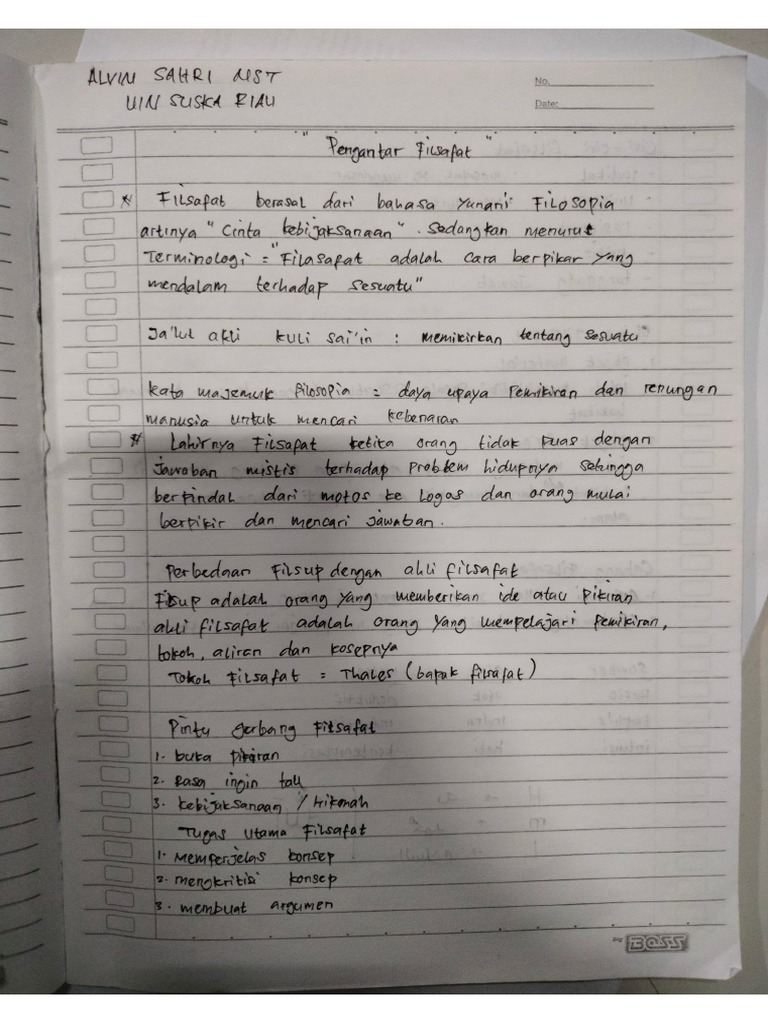 ALVIN SAHRI NST
UIN SUSKA RIAU
No.
Date:
"Pengantar Filsafat"
* Filsafat berasal dari bahasa Yunani Filosopia
artinya "Cinta kebijaksanaan". Sedangkan menurut
Terminologi = "Filasafat adalah cara berpikar yang
mendalam terhadap sesuatu"
Ja'lul akli kuli sai'in : memikirkan tentang sesuatu"
kata majemuk filosopia = daya upaya Pemikiran dan renungan
manusia untuk mencari kebenaran
* Lahirnya Filsafat ketika orang tidak puas dengan
Jawaban mistis terhadap Problem hidupnya sehingga
berpindah dari motos ke Logos dan orang mulai
berpikir dan mencari jawaban.
Perbedaan Filsup dengan ahli filsafat
Fisup adalah orang yang memberikan ide atau pikiran
ahli filsafat adalah orang yang mempelajari pemikiran,
tokoh, aliran dan kosepnya
Tokoh Filsafat = Thales (bapak filsafat)
Pintu gerbang Filsafat
1. buka pikiran
2. Rasa ingin tau
3. kebijaksanaan / Hikmah
Tugas Utama Filsafat
1. Memperjelas konsep
2. mengkritisi konsep
3. membuat argumen
by BOSS